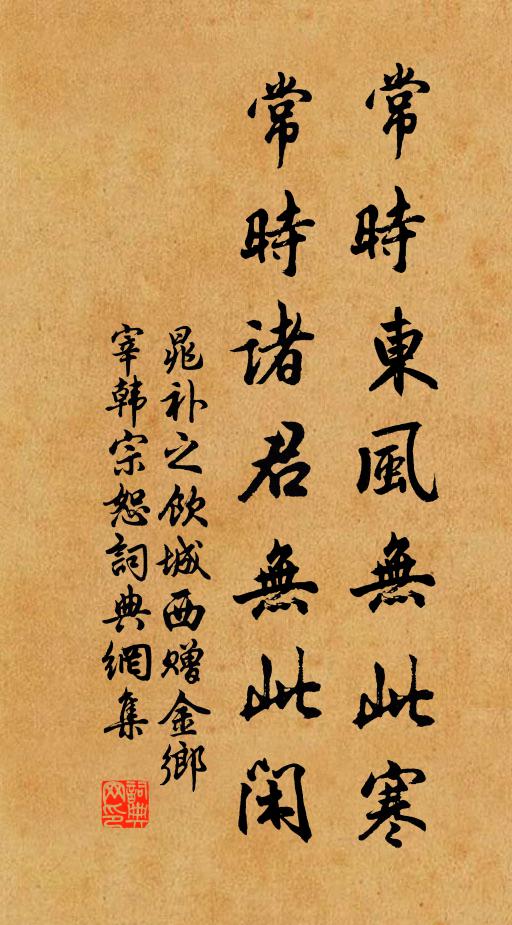 常時東風無此寒
常時諸君無此閑
晁补之飲城西赠金鄉
宰韩宗恕詞典網集
詞典網印